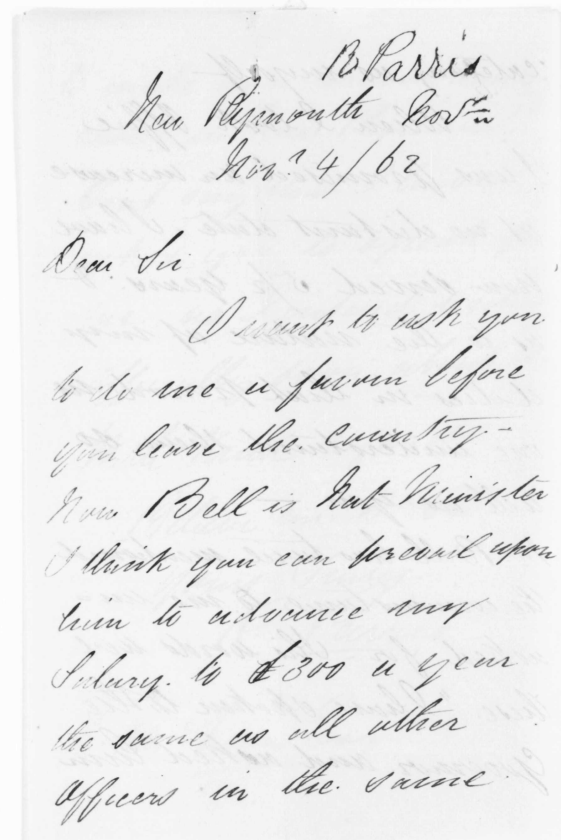 R Parris
New Plymouth
Novr 4/62
Dear Sir
I want to ask you
to do me a favour before
you leave the country -
Now Bell is Nat Minister
I think you can prevail upon
him to advance my
Salary. to £300 a year
the same as all other
Officers in the same